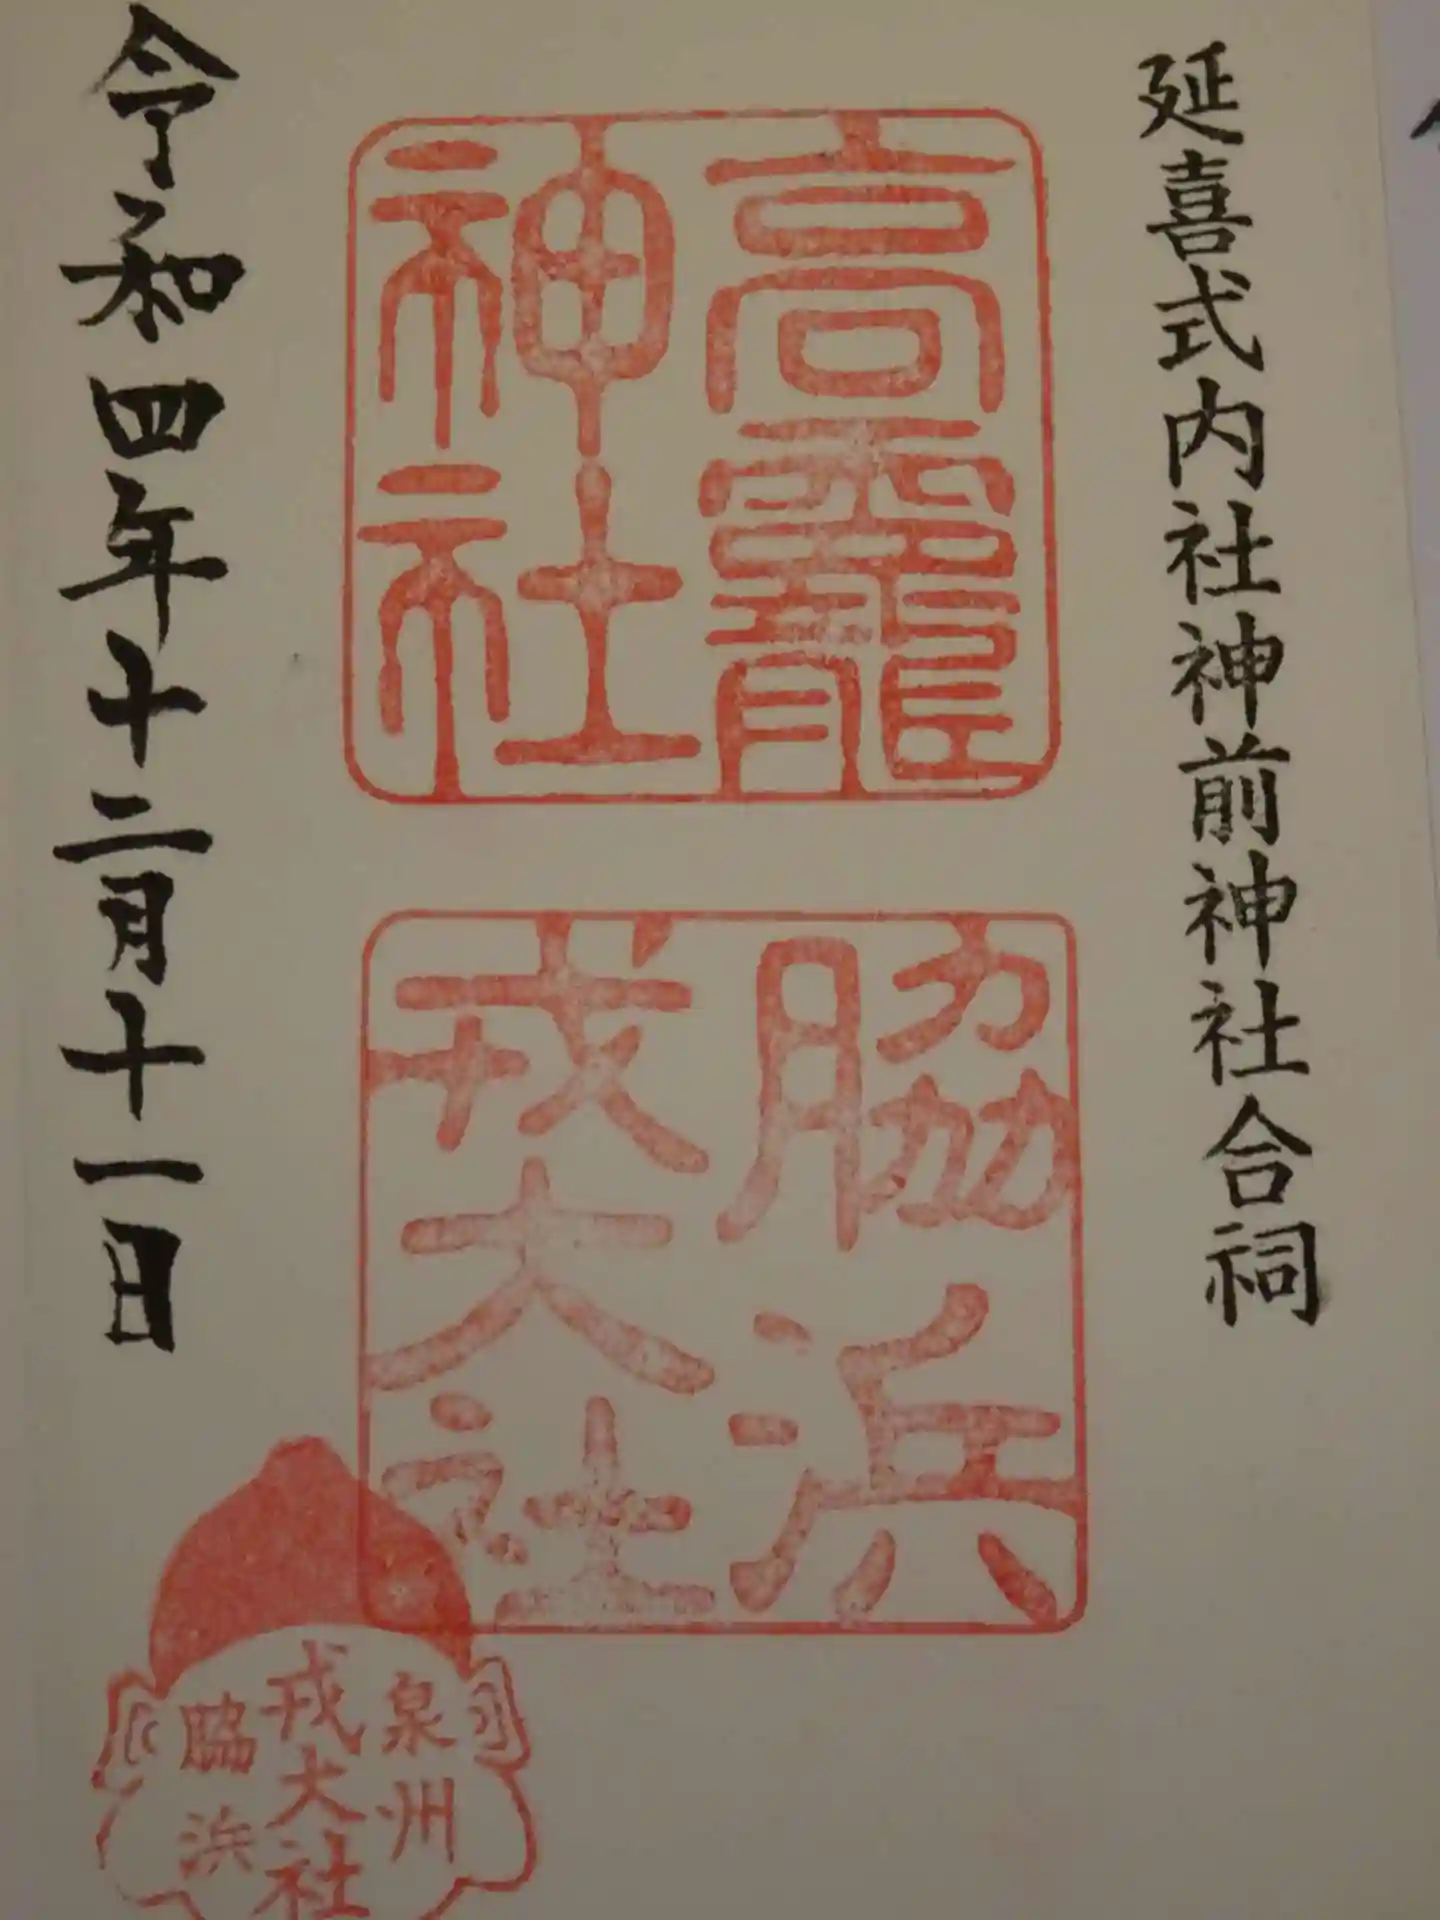 延喜式内社神前神社合祠
高龗
神社
脇浜
戎大社
令和四年十二月十一日
泉州
戎大社
脇浜